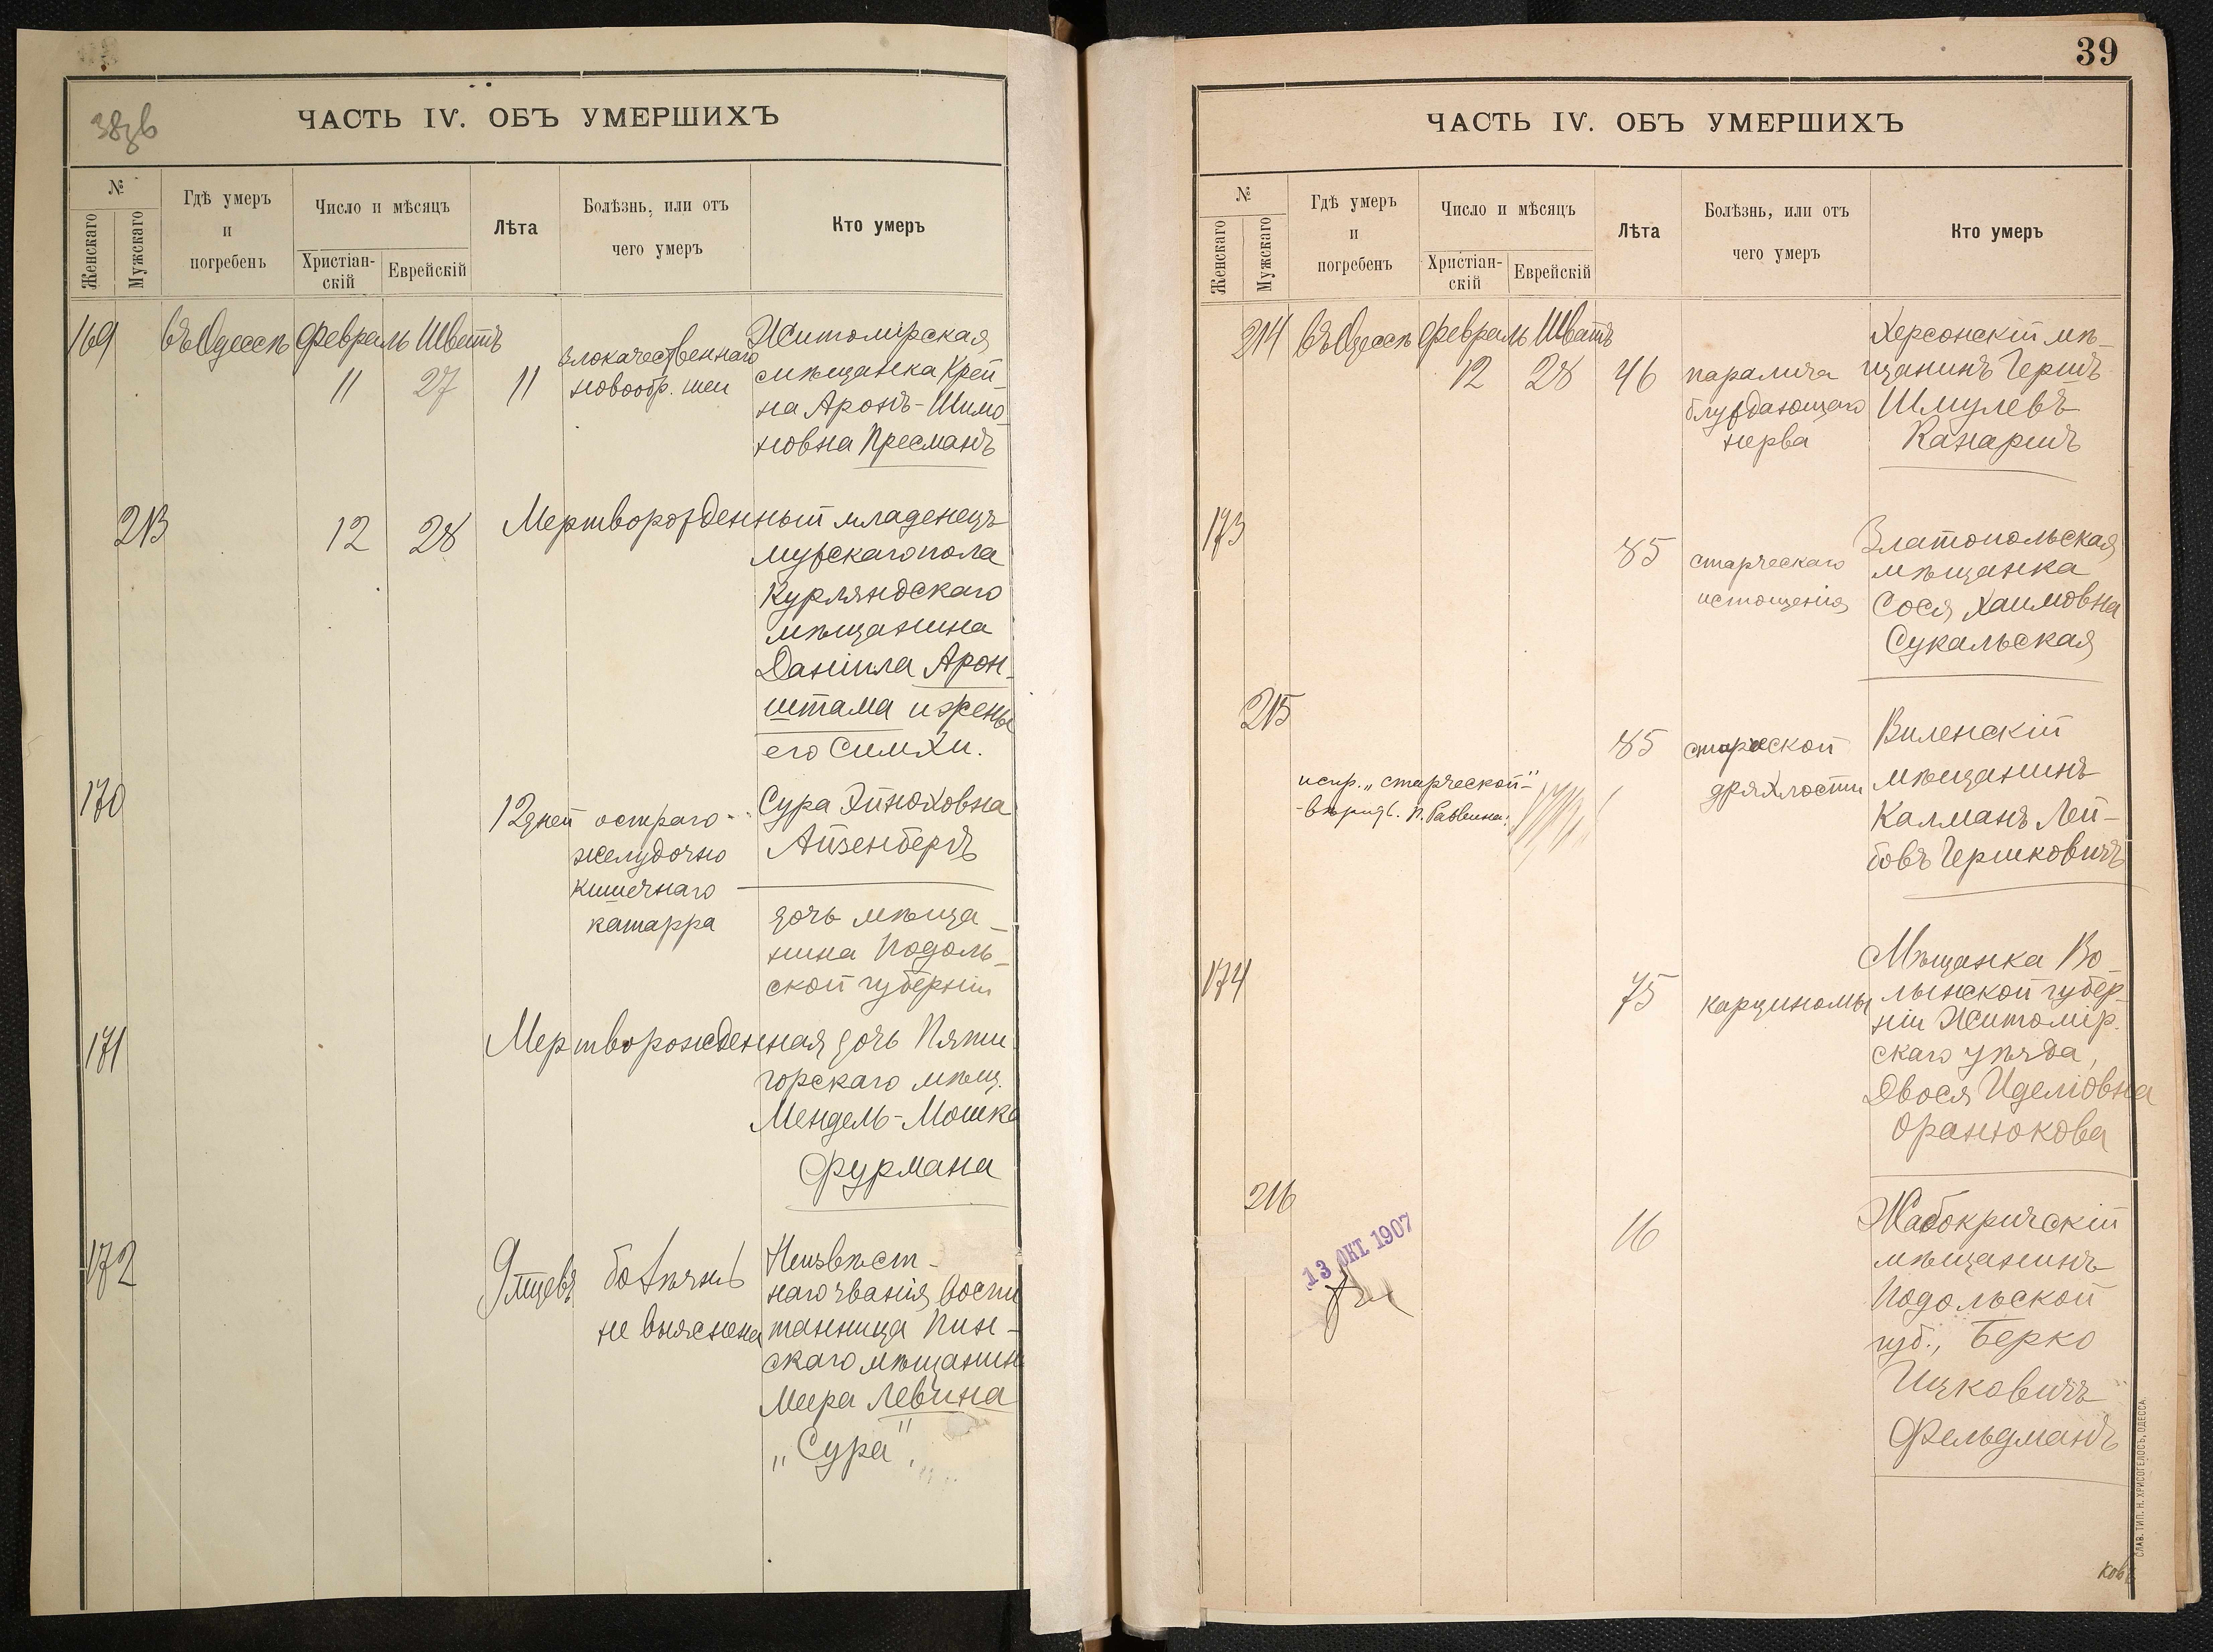 38зв
ЧАСТЬ IV. ОБЪ УМЕРШИХЪ
№
Женскаго
Мужскаго
Гдѣ умеръ
и
погребенъ
Число и мѣсяцъ
Христіан-
скій
Еврейскій
Лѣта
Болѣзнь, или отъ
чего умеръ
Кто умеръ
169 въ Одессѣ Февраль Шватъ
11 27 11
злокачественнаго
новообр. шеи
Житомірская
мѣщанка Крей-
на Аронъ-Шимо-
новна Пресманъ
213 12 28 Мертворожденный младенецъ
мужскаго пола
Курляндскаго
мѣщанина
Даніила Арон-
штама и жены
его Симхи.
170
12 дней остраго
желудочно
кишечнаго
катарра
Сура Эйноховна
Айзенбергъ
дочь мѣща-
нина Подоль-
ской губерніи
171 Мертворожденная дочь Пяти-
горскаго мѣщ.
Мендель-Мошка
Фурмана
172
9 мцевъ болѣзнь
не выяснена
Неизвѣст-
наго званія, воспи
танница Пин-
скаго мѣщанин
Меера Левина
„Сура"
39
ЧАСТЬ IV. ОБЪ УМЕРШИХЪ
№
Женскаго
Мужскаго
Гдѣ умеръ
и
погребенъ
Число и мѣсяцъ
Христіан-
скій
Еврейскій
Лѣта
Болѣзнь, или отъ
чего умеръ
Кто умеръ
214 въ Одессѣ Февраль Шватъ
12 28 46
паралича
блуждающаго
нерва
Херсонскій мѣ-
щанинъ Гершъ
Шмулевъ
Канаршъ
173
85 старческаго
истощенія
Златопольская
мѣщанка
Сося Хаимовна
Сукальская
215
85 старческой
дряхлости
испр. „старческой"-
-вѣрить. П. Раввина:
Виленскій
мѣщанинъ
Калманъ Лей-
бовъ Гершковичъ
174
75 карциномы
Мѣщанка Во-
лынской губер-
ніи Житомір.
скаго уѣзда,
Двося Иделіовна
Оранюкова
216
16
13 ОКТ. 1907
Жабокричскій
мѣщанинъ
Подольской
губ., Берко
Ицковичъ
Фельдманъ
СЛАВ. ТИП. Н. ХРИСОГЕЛОСЪ, ОДЕССА.
ков